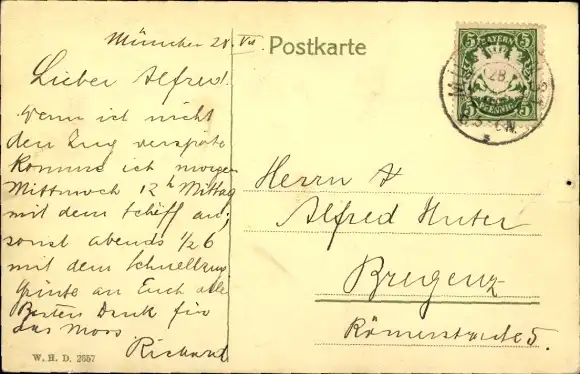 München 28. VII.
Lieber Alfred.
Wenn ich nicht
den Zug verspäte
komme ich morgen
Mittwoch 12 h Mittag
mit dem Schiff an,
sonst abends 1/2 6
mit dem Schnellzug
Grüße an Euch alle
Besten Dank für
das Moos
Richard
W. H. D. 2657
Postkarte
5 BAYERN 5
5 PFENNIG 5
28
Herrn
Alfred Huter
Bregenz
Römerstraße 5.